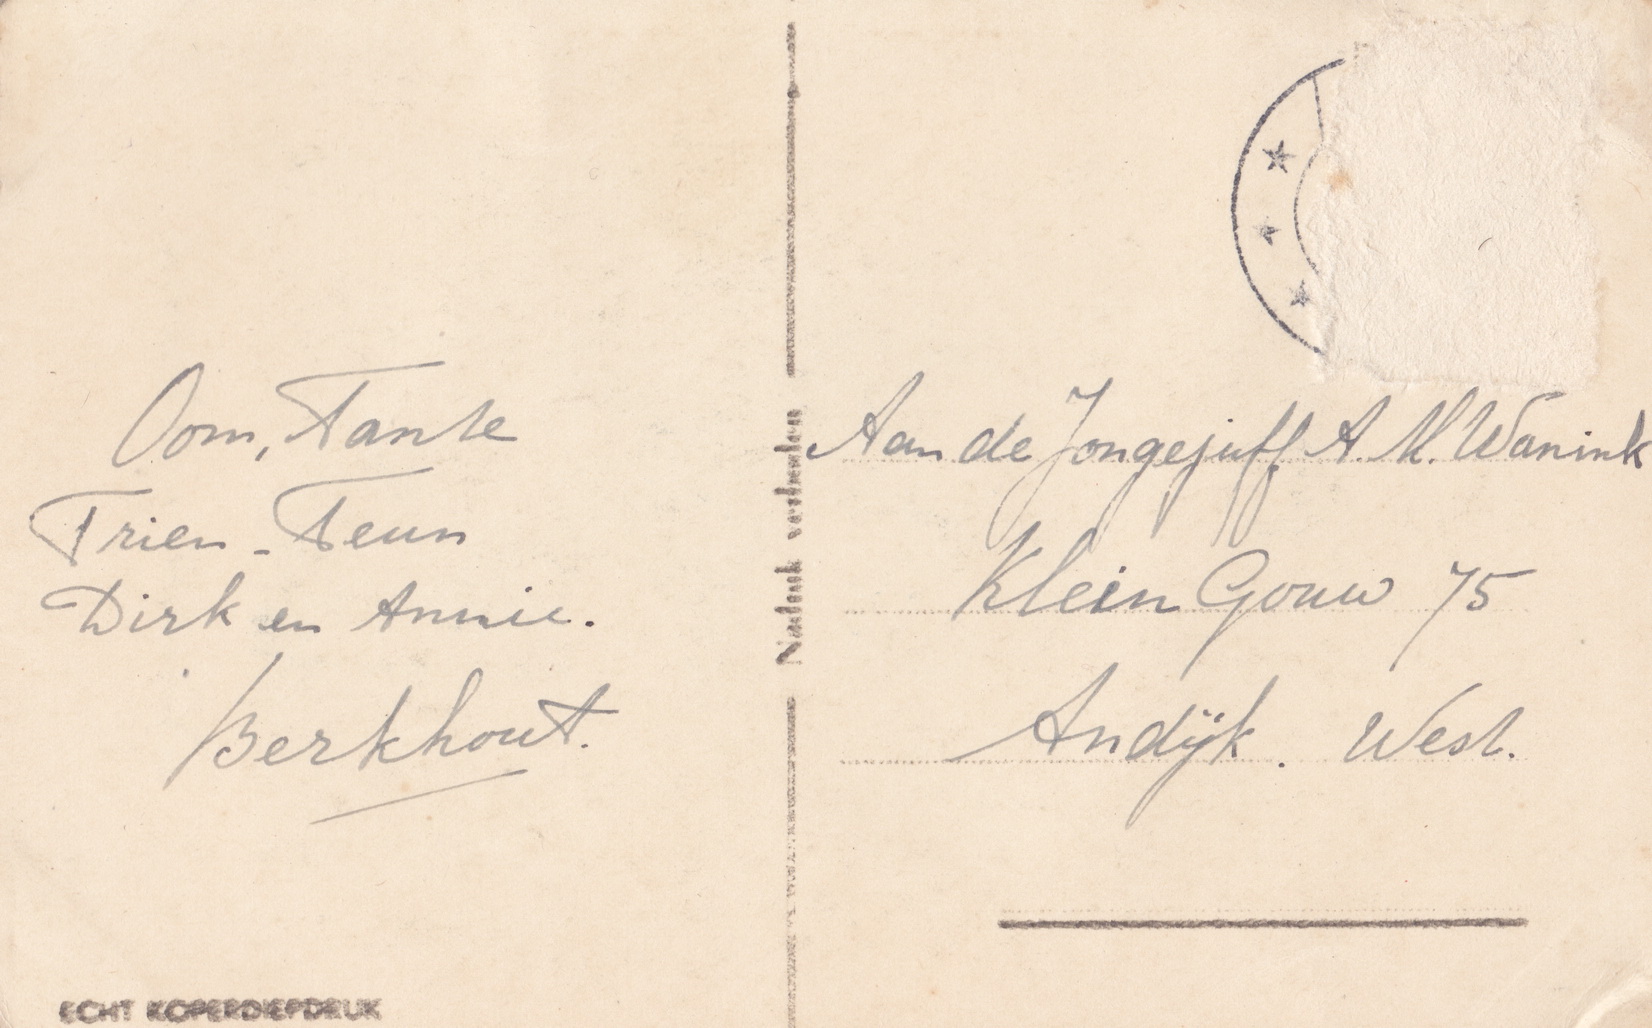 Oom, Tante
Trien - Teun
Dirk en Annie.
Berkhout.
ECHT KOPERDIEPDRUK
Nadruk verboden
Aan de Jongejuff A. M. Wanink
Klein Gouw 75
Andijk. West.